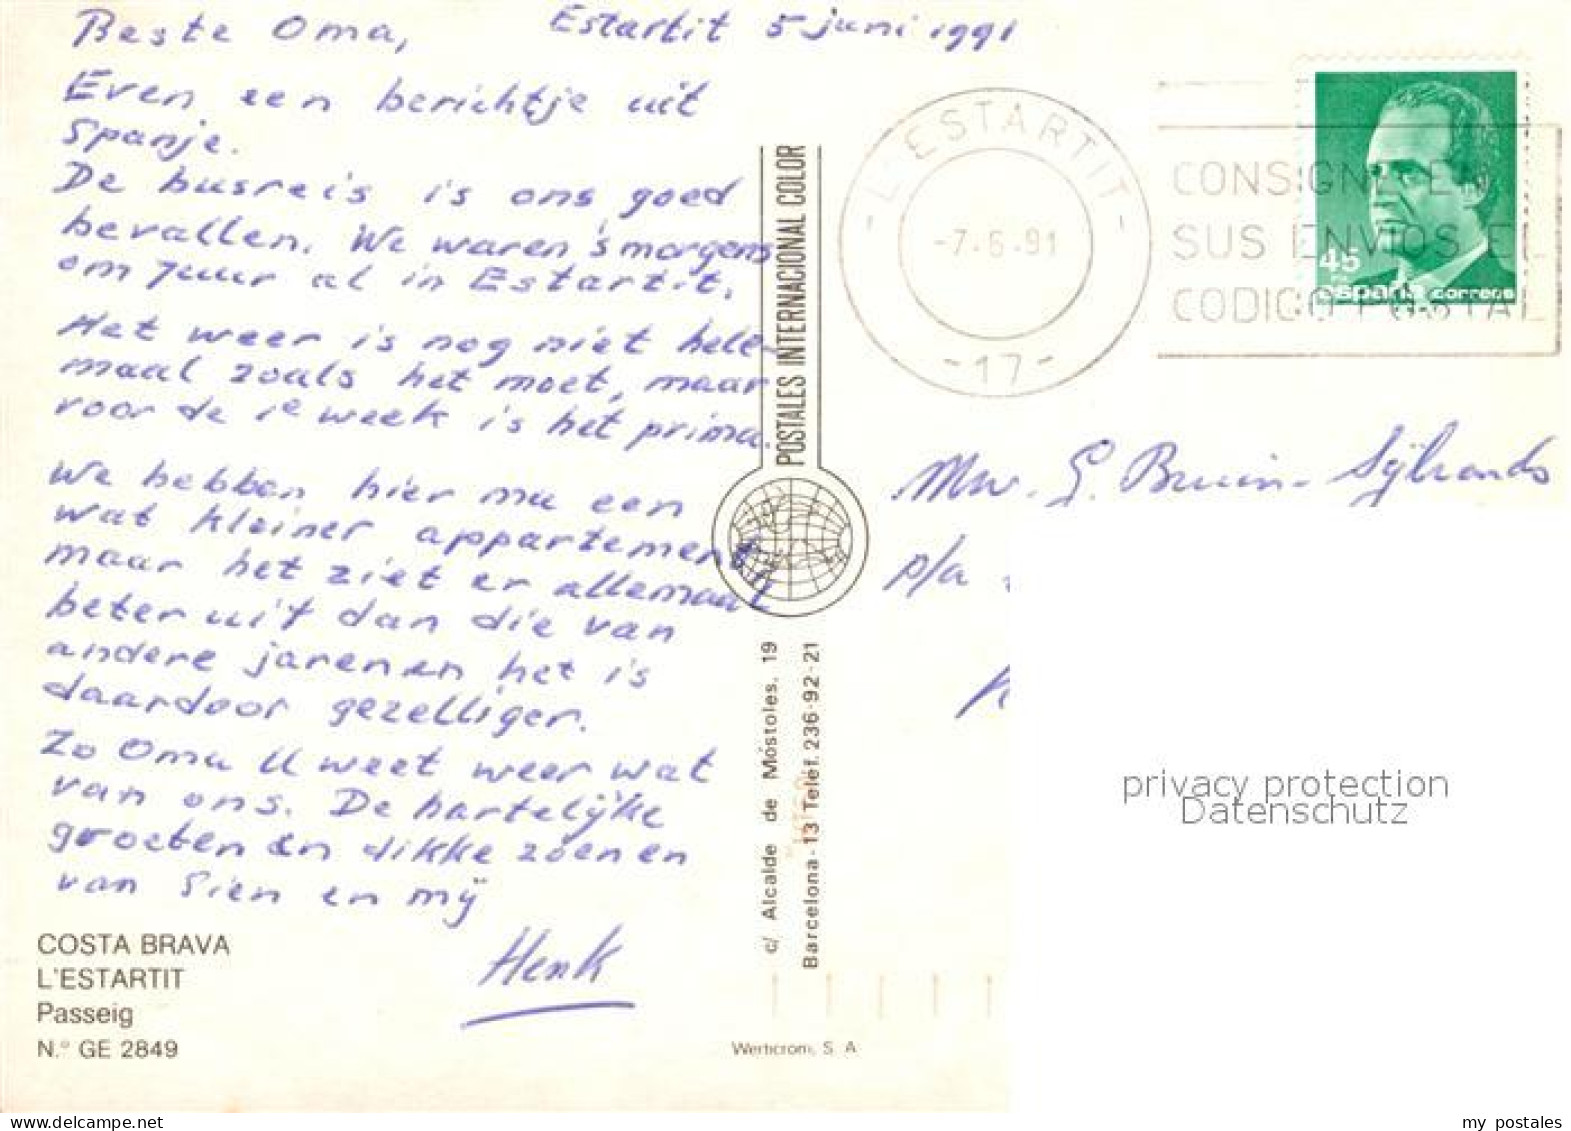 Beste Oma, Estartit 5 juni 1991
Even een berichtje uit
Spanje.
De busreis is ons goed
bevallen. We waren 's morgens
om 7 uur al in Estartit.
Het weer is nog niet hele-
maal zoals het moet, maar
voor de 1e week is het prima.
We hebben hier nu een
wat kleiner appartement
maar het ziet er allemaal
beter uit dan die van
andere jaren en het is
daardoor gezelliger.
Zo Oma U weet weer wat
van ons. De hartelijke
groeten en dikke zoenen
van Sien en mij
Henk
COSTA BRAVA
L'ESTARTIT
Passeig
N.° GE 2849
POSTALES INTERNACIONAL COLOR
c/ Alcalde de Móstoles, 19
Barcelona-13 Telef. 236-92-21
Werticrom, S. A
- L'ESTARTIT -
-7.-6.-91
-17-
CONSIGNE EN
SUS ENVIOS EL
CODIGO POSTAL
45
españa correos
Mw. G. Bruin-
p/a
privacy protection
Datenschutz
delcampe.net
my_postales